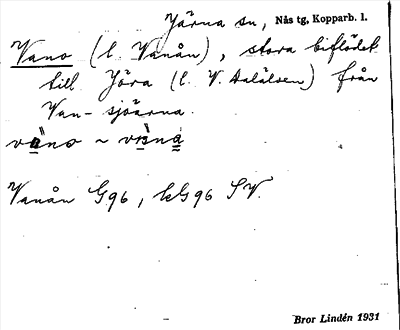 Järna sn, Nås tg, Kopparb. l.
Vano (l. Vanån), stora biflödet
till Jöra (l. V. Dalälven) från
Van-sjöarna.
Vanån G96, kG96 SV.
Bror Lindén 1931